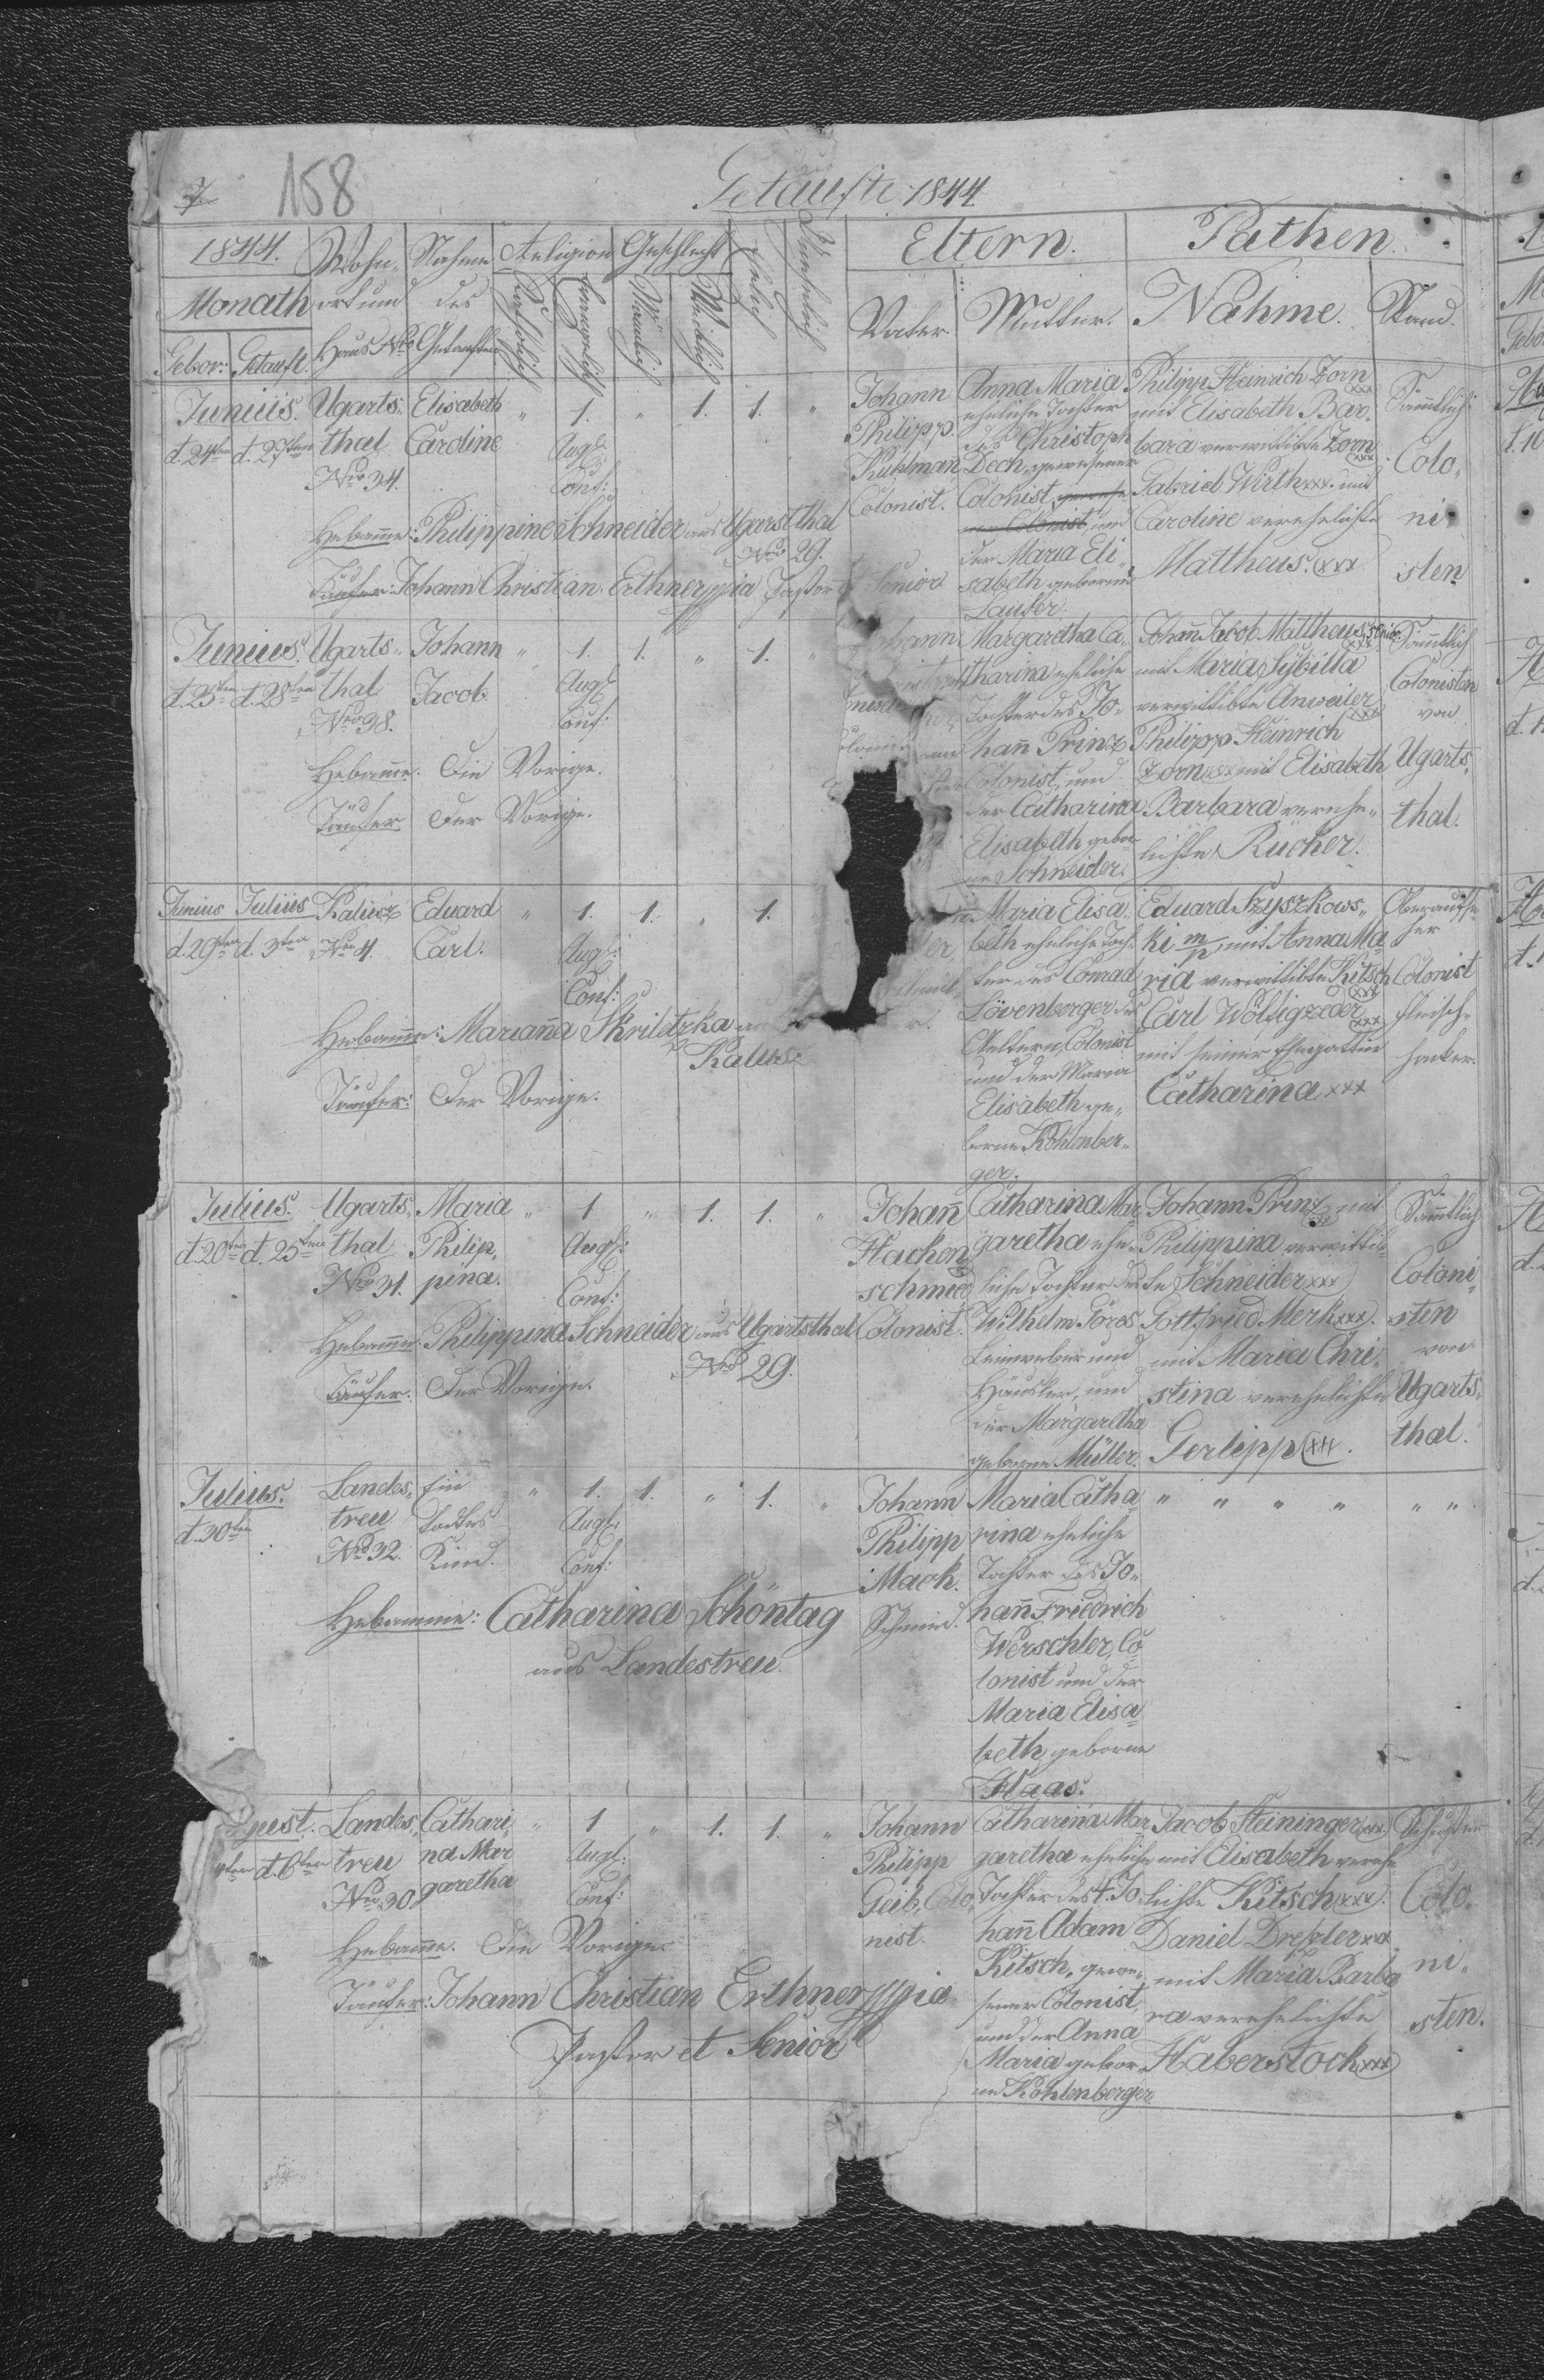 7
158
Getaufte 1844
1844. Monath
Gebor: Getauft.
Wohn„ ort und Haus Nro
Nahme des Getauften
Religion
Katholisch
Evangelisch
Geschlecht
Männlich
Weiblich
Ehelich
Unehelich
Eltern.
Vater
Mutter.
Pathen
Nahme.
Stand.
Junius.
d. 24ten d. 27ten
Ugarts„
thal
Nro 34.
Elisabeth
Caroline
„ 1. „ 1. 1. „
Augs:
Conf:
Johann
Philipp
Kuhlman
Colonist.
Anna Maria
eheliche Tochter
des Christoph
Dech, gewesener
Colonist, gewese
ner Colonist, und
der Maria Eli„
sabeth geborne
Lauber.
Philipp Heinrich Zorn
xxx
mit Elisabeth Bar„
bara verwittibte Zorn
xxx
Gabriel Wirth xxx. mit
Caroline verehelichte
Mattheus. (xxx
Sämmtlich
Colo„
ni„
sten
Hebamme: Philippine Schneider aus Ugarsthal
Nro 29.
Täufer: Johann Christian Erthner ppia Pastor et Senior
Junius.
d. 25ten d. 28ten
Ugarts„
thal
Nro 38.
Johann
Jacob.
„ 1. 1. „ 1. „
Augs
Conf:
hann
Margaretha Ca„
tharina eheliche
Tochter des Jo„
hann Prinz
Colonist, und
der Catharina
Elisabeth gebor
ne Schneider.
Johann Jacob Mattheus, senior
xxx
mit Maria Sÿbilla
verwittibte Anweiler
xxx
Philipp Heinrich
Zorn xxx mit Elisabeth
Barbara verehe„
lichte Rücker.
Sämmtlich
Colonisten
von
Ugarts„
thal.
Hebamme. Die Vorige.
Täufer Der Vorige.
Junius Julius
d. 29ten d. 3ten
Kalusz
Nro 4.
Eduard
Carl.
„ 1. 1. „ 1.
Augs:
Conf:
er,
Maria Elisa„
beth eheliche Toch„
ter des Conrad
Lövenberger des
Aeltern, Colonist
und der Maria
Elisabeth ge„
borne Kohlenber„
ger.
Eduard Szyszkows„
ki m/p mit Anna Ma
ria verwittibte Kitsch
xxx
Carl
xxx
mit seiner Ehegattin
Catharina xxx
Oberaufse
her
Colonist
Fleisch„
hacker.
Hebamme: Marianna Skrilitzka
Kalusz
Täufer: Der Vorige.
Julius.
d. 20ten d. 25ten
Ugarts„
thal
Nro 31.
Maria
Philip„
pina.
„ 1 „ 1. 1. „
Augs:
Conf:
Johann
Hacken„
schmid
Colonist.
Catharina Mar
garetha ehe„
liche Tochter des
Wilhelm Göres
Leinweber und
Häusler, und
der Margaretha
geborne Müller.
Johann Prinz mit
Philippina verwittib„
te Schneider xxx)
Gottfried Merk xxx).
mit Maria Chri„
stina verehelichte
Gerlipp (xxx.
Sämmtlich
Coloni„
sten
von
Ugarts„
thal.
Hebamme: Philippina Schneider aus Ugartsthal
Nro 29.
Täufer. Der Vorige.
Julius.
d. 30ten
Landes„
treu
Nro 32.
Ein
todtes
Kind.
„ 1. 1. „ 1. „
Augs:
Conf:
Johann
Philipp
Mack.
Schmid.
Maria Catha
rina eheliche
Tochter des Jo„
hann Friedrich
Werschler, Co
lonist und der
Maria Elisa
beth geborne
Haas.
„ „ „ „ „ „
Hebamme: Catharina Schöntag
aus Landestreu.
gust.
4ten d. 6ten
Landes„
treu
Nro 30
Cathari„
na Mar
garetha
„ 1 „ 1. 1. „
Augs:
Conf:
Johann
Philipp
Geib, Colo„
nist.
Catharina Mar
garetha eheliche
Tochter des +. Jo„
hann Adam
Kitsch, gewe„
sener Colonist,
und der Anna
Maria gebor„
ne Kohlenberger
Jacob Steininger xxx
mit Elisabeth verehe
lichte Kitsch (xxx).
Daniel Drexler xxx
mit Maria Barba
ra verehelichte
Haberstock (xxx)
Schuster
Colo„
ni„
sten.
Hebamme. Die Vorige
Täufer: Johann Christian Erthner ppia
Pastor et Senior